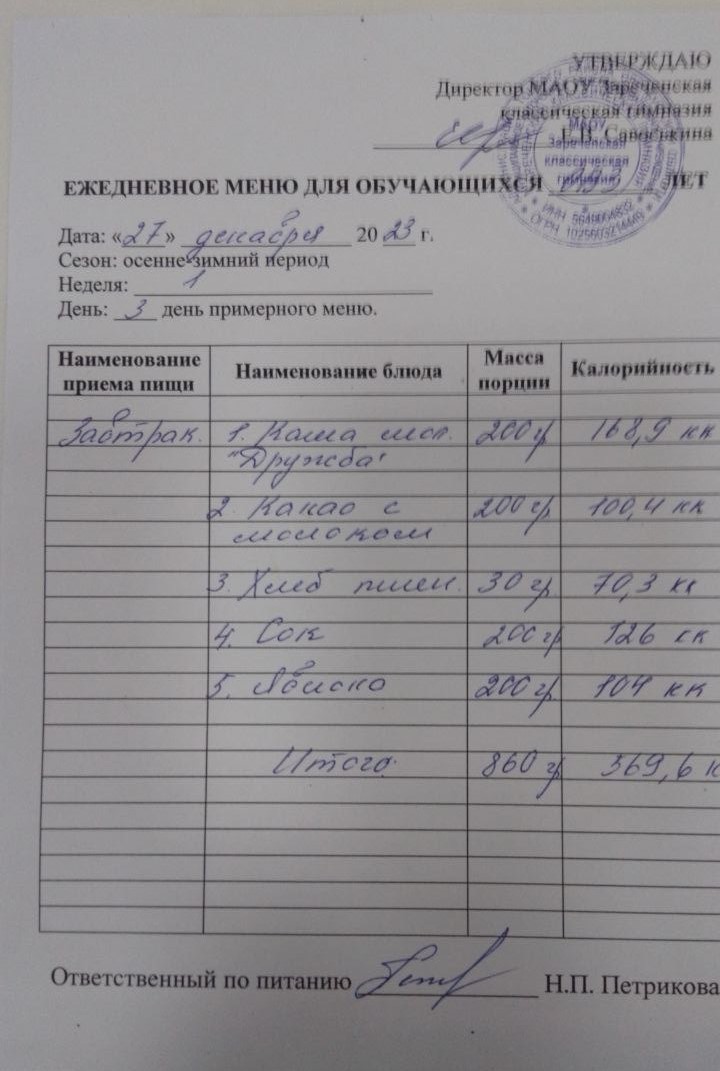 УТВЕРЖДАЮ
Директор МАОУ Зареченская
классическая гимназия
Е.В. Савоськина
МАОУ
Зареченская
классическая
гимназия
ИНН 5649004832
ОГРН 1025603214449
ЕЖЕДНЕВНОЕ МЕНЮ ДЛЯ ОБУЧАЮЩИХСЯ ЛЕТ
Дата: «27» декабря 20 23 г.
Сезон: осенне-зимний период
Неделя: 1
День: 3 день примерного меню.
Наименование приема пищи Наименование блюда Масса порции Калорийность
Завтрак. 1. Каша мол. 200 гр 168,9 кк
"Дружба"
2. Какао с 200 гр 100,4 кк
молоком
3. Хлеб пшен. 30 гр 70,3 кк
4. Сок 200 гр 126 кк
5. Яблоко 200 гр 104 кк
Итого: 860 гр 369,6 к
Ответственный по питанию Н.П. Петрикова